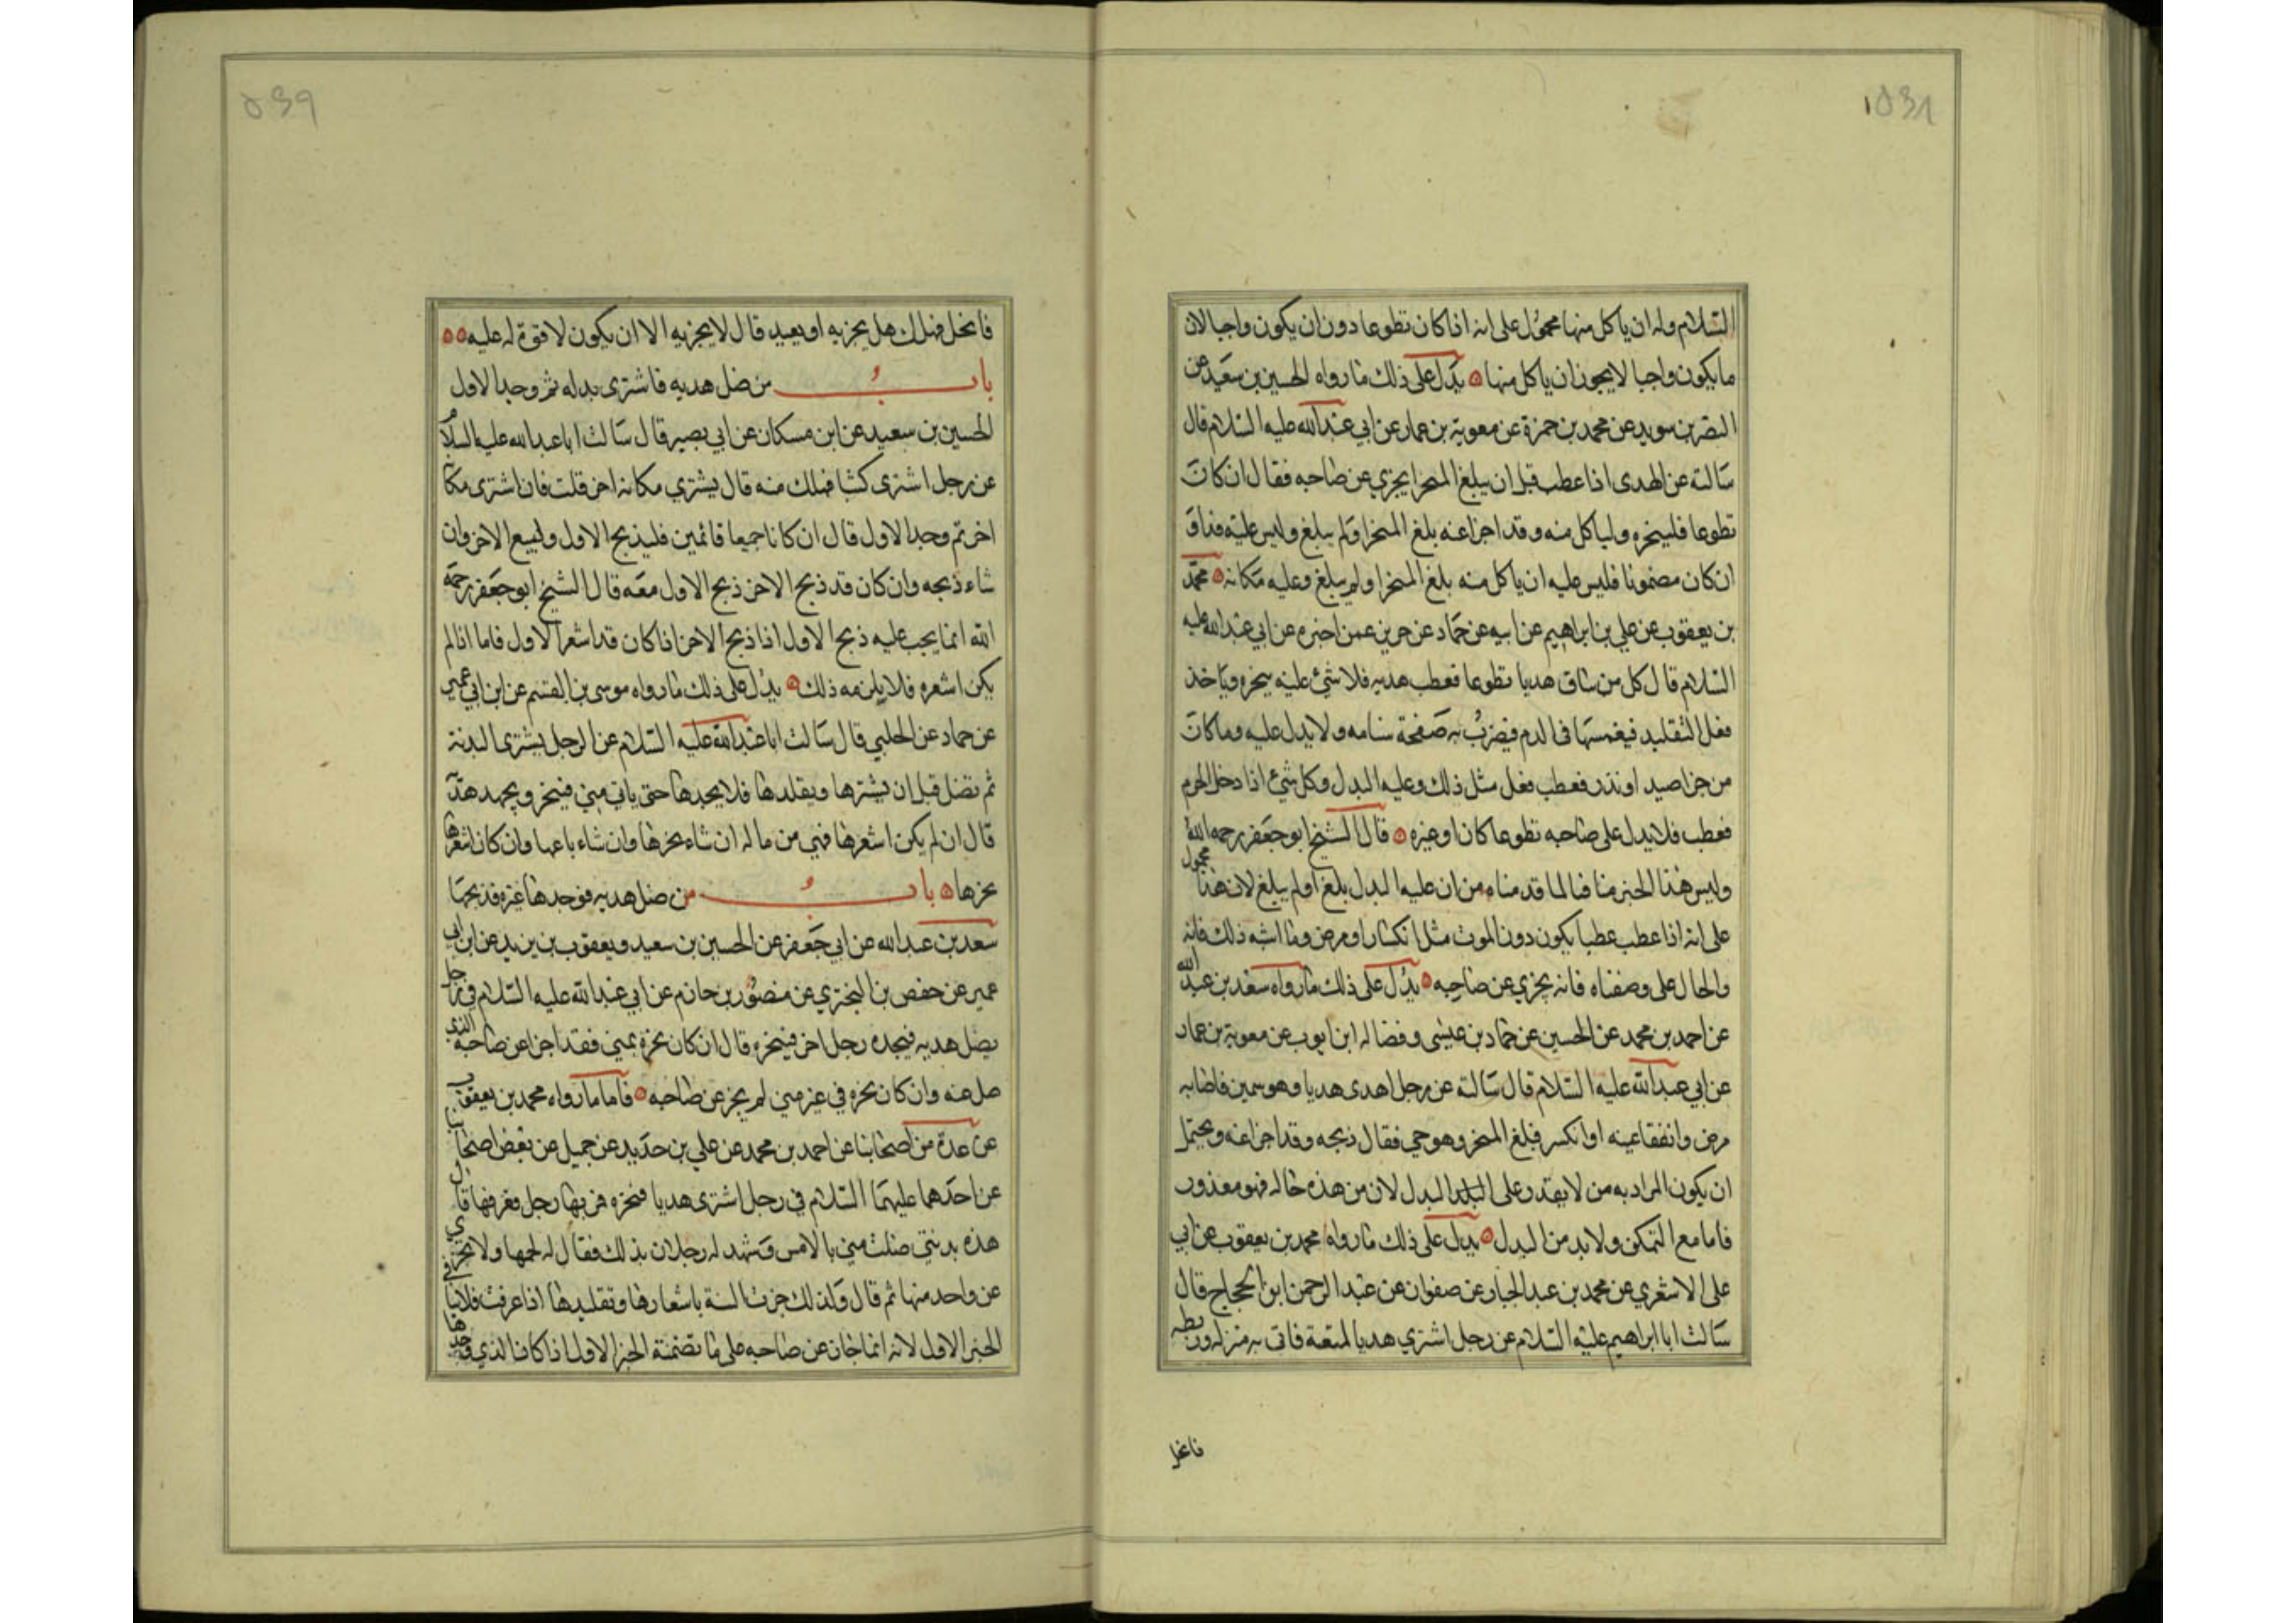 ۵۳۸
السلام وله ان ياكل منها محمول على انه اذا كان تطوعا دون ان يكون واجبا لان
ما يكون واجبا لا يجوز ان ياكل منها يدل على ذلك ما رواه الحسين بن سعيد عن
النضر بن سويد عن محمد بن حمزة عن معوية بن عمار عن ابي عبد الله عليه السلام قال
سالته عن الهدى اذا عطب قبل ان يبلغ المنحر ايجزي عن صاحبه فقال ان كان
تطوعا فلينحره ولياكل منه وقد اجزا عنه بلغ المنحر او لم يبلغ وليس عليه فداو
ان كان مضمونا فليس عليه ان ياكل منه بلغ المنحر او لم يبلغ وعليه مكانه محمد
بن يعقوب عن علي بن ابراهيم عن ابيه عن حماد عن حريز عمن اخبره عن ابي عبد الله عليه
السلام قال كل من ساق هديا تطوعا فعطب هديه فلا شئ عليه ينحره وياخذ
فعل التقليد فيغمسها في الدم فيضرب به صفحة سنامه ولا بدل عليه وما كان
من جزا صيد او نذر فعطب فعل مثل ذلك وعليه البدل وكل شئ اذا دخل الحرم
فعطب فلا بدل على صاحبه تطوعا كان او غيره قال الشيخ ابو جعفر رحمه الله
وليس هذا الخبر منافيا لما قدمناه من ان عليه البدل بلغ او لم يبلغ لان هذا محمول
على انه اذا عطب عطبا يكون دون الموت مثل انكسار او مرض وما اشبه ذلك فانه
والحال على وصفناه فانه يجزي عن صاحبه يدل على ذلك ما رواه سعد بن عبد الله
عن احمد بن محمد عن الحسين عن حماد بن عيسى وفضاله ابن ايوب عن معوية بن عمار
عن ابي عبد الله عليه السلام قال سالته عن رجل اهدى هديا وهو سمين فاصابه
مرض وانفقا عينه او انكسر فبلغ المنحر وهو حي فقال ذبحه وقد اجزا عنه ويحتمل
ان يكون المراد به من لا يقدر على البدل لان من هذه حاله فهو معذور
فاما مع التمكن ولا بد من البدل يدل على ذلك ما رواه محمد بن يعقوب عن ابي
على الاشعري عن محمد بن عبد الجبار عن صفوان عن عبد الرحمن ابن الحجاج قال
سالت ابا ابراهيم عليه السلام عن رجل اشترى هديا لمتعة فاتى به منزله وربطه
فانحل
۵۳۹
فانحل فهلك هل يجزيه او يعيد قال لا يجزيه الا ان يكون لا قوة له عليه
باب من ضل هديه فاشترى بدله ثم وجد الاول
الحسين بن سعيد عن ابن مسكان عن ابي بصير قال سالت ابا عبد الله عليه السلام
عن رجل اشترى كبشا فهلك منه قال يشتري مكانه اخر قلت فان اشترى مكانه
اخر ثم وجد الاول قال ان كانا جميعا قائمين فليذبح الاول وليبع الاخر وان
شاء ذبحه وان كان قد ذبح الاخر ذبح الاول معه قال الشيخ ابو جعفر رحمه
الله انما يجب عليه ذبح الاول اذا ذبح الاخر اذا كان قد اشعر الاول فاما اذا لم
يكن اشعره فلا يلزمه ذلك يدل على ذلك ما رواه موسى بن القسم عن ابن ابي عمير
عن حماد عن الحلبي قال سالت ابا عبد الله عليه السلام عن الرجل يشترى البدنة
ثم تضل قبل ان يشعرها ويقلدها فلا يجدها حتى ياتي منى فينحر ويجد هديه
قال ان لم يكن اشعرها فهي من ماله ان شاء نحرها وان شاء باعها وان كان اشعرها
نحرها باب من ضل هديه فوجدها غيره فذبحها
سعد بن عبد الله عن ابي جعفر عن الحسين بن سعيد ويعقوب بن يزيد عن ابن ابي
عمير عن حفص بن البختري عن منصور بن حازم عن ابي عبد الله عليه السلام في رجل
يضل هديه فيجده رجل اخر فينحره قال ان كان نحره بمنى فقد اجزا عن صاحبه الذي
ضل عنه وان كان نحره في غير منى لم يجز عن صاحبه فاما ما رواه محمد بن يعقوب
عن عدة من اصحابنا عن احمد بن محمد عن علي بن حديد عن جميل عن بعض اصحابنا
عن احدهما عليهما السلام في رجل اشترى هديا فنحره فمر بها رجل فعرفها قال
هذه بدنتي ضلت مني بالامس وشهد له رجلان بذلك فقال له لحمها ولا تجزي
عن واحد منها ثم قال ولذلك جرت السنة باشعارها وتقليدها اذا عرفت فلا ينافي
الخبر الاول لانه انما جاز عن صاحبه على ما تضمنه الخبر الاول اذا كان الذي وجدها